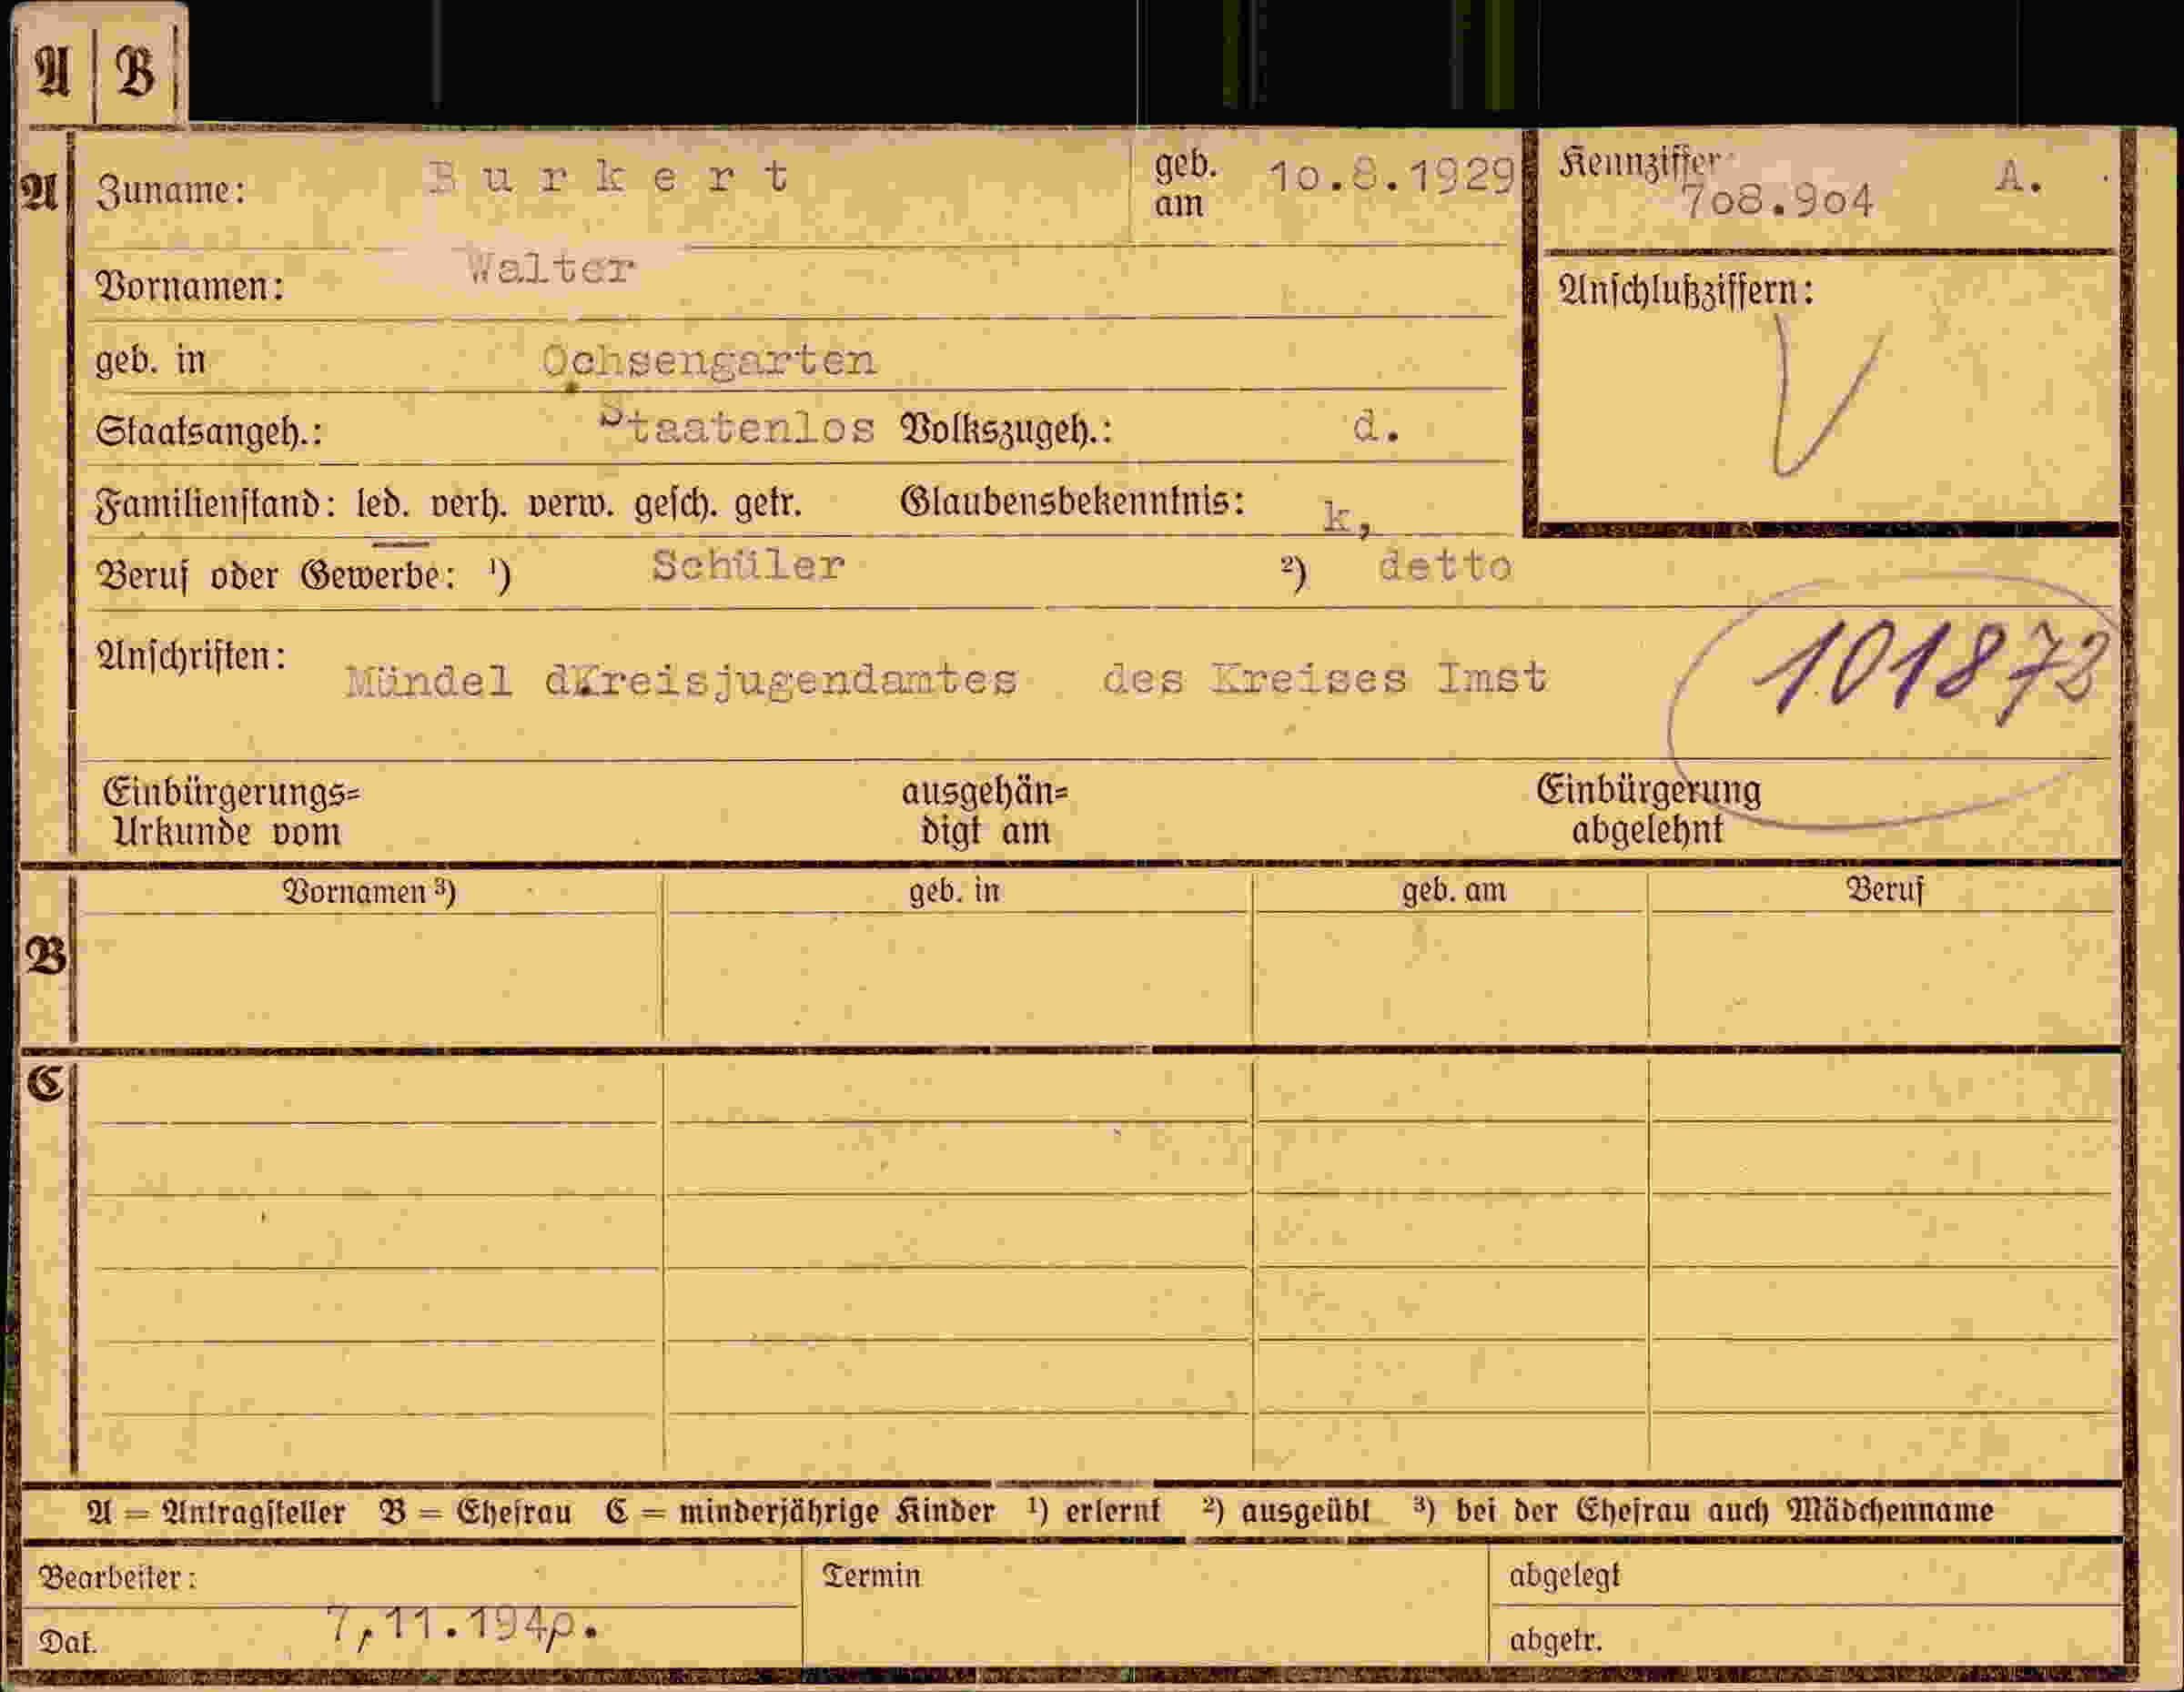 A B
A Zuname: Burkert geb. am 10.8.1929 Kennziffer 708.904 A.
Vornamen: Walter
Anschlußziffern:
geb. in Ochsengarten
Staatsangeh.: Staatenlos Volkszugeh.: d.
Familienstand: led. verh. verw. gesch. getr. Glaubensbekenntnis: k,
Beruf oder Gewerbe: 1) Schüler 2) detto
Anschriften: Mündel d.Kreisjugendamtes des Kreises Imst 101872
Einbürgerungs= Urkunde vom ausgehän= digt am Einbürgerung abgelehnt
Vornamen 3) geb. in geb. am Beruf
B
C
A = Antragsteller B = Ehefrau C = minderjährige Kinder 1) erlernt 2) ausgeübt 3) bei der Ehefrau auch Mädchenname
Bearbeiter: Termin abgelegt
Dat. 7,11.1940. abgetr.